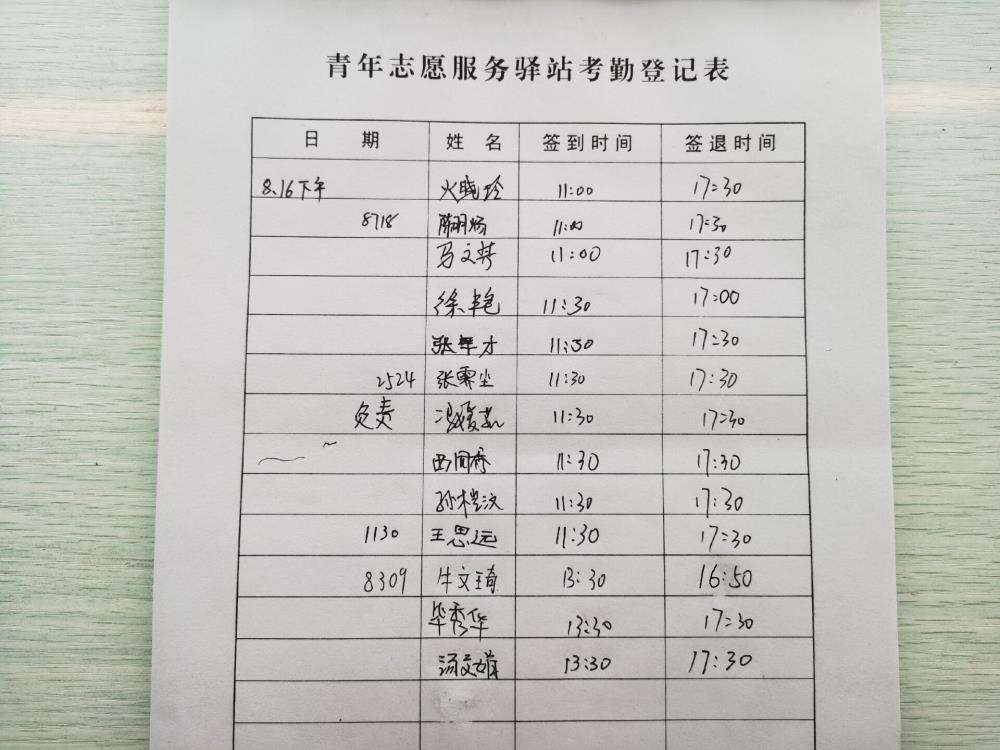 青年志愿服务驿站考勤登记表
日 期 姓 名 签到时间 签退时间
8.16下午 火晓玲 11:00 17:30
8718 11:00 17:30
马文 11:00 17:30
徐 11:30 17:00
张 才 11:30 17:30
2524 张霁尘 11:30 17:30
负责 11:30 17:30
11:30 17:30
孙 11:30 17:30
1130 王思远 11:30 17:30
8309 牛文琦 13:30 16:50
毕秀华 13:30 17:30
汤文娟 13:30 17:30